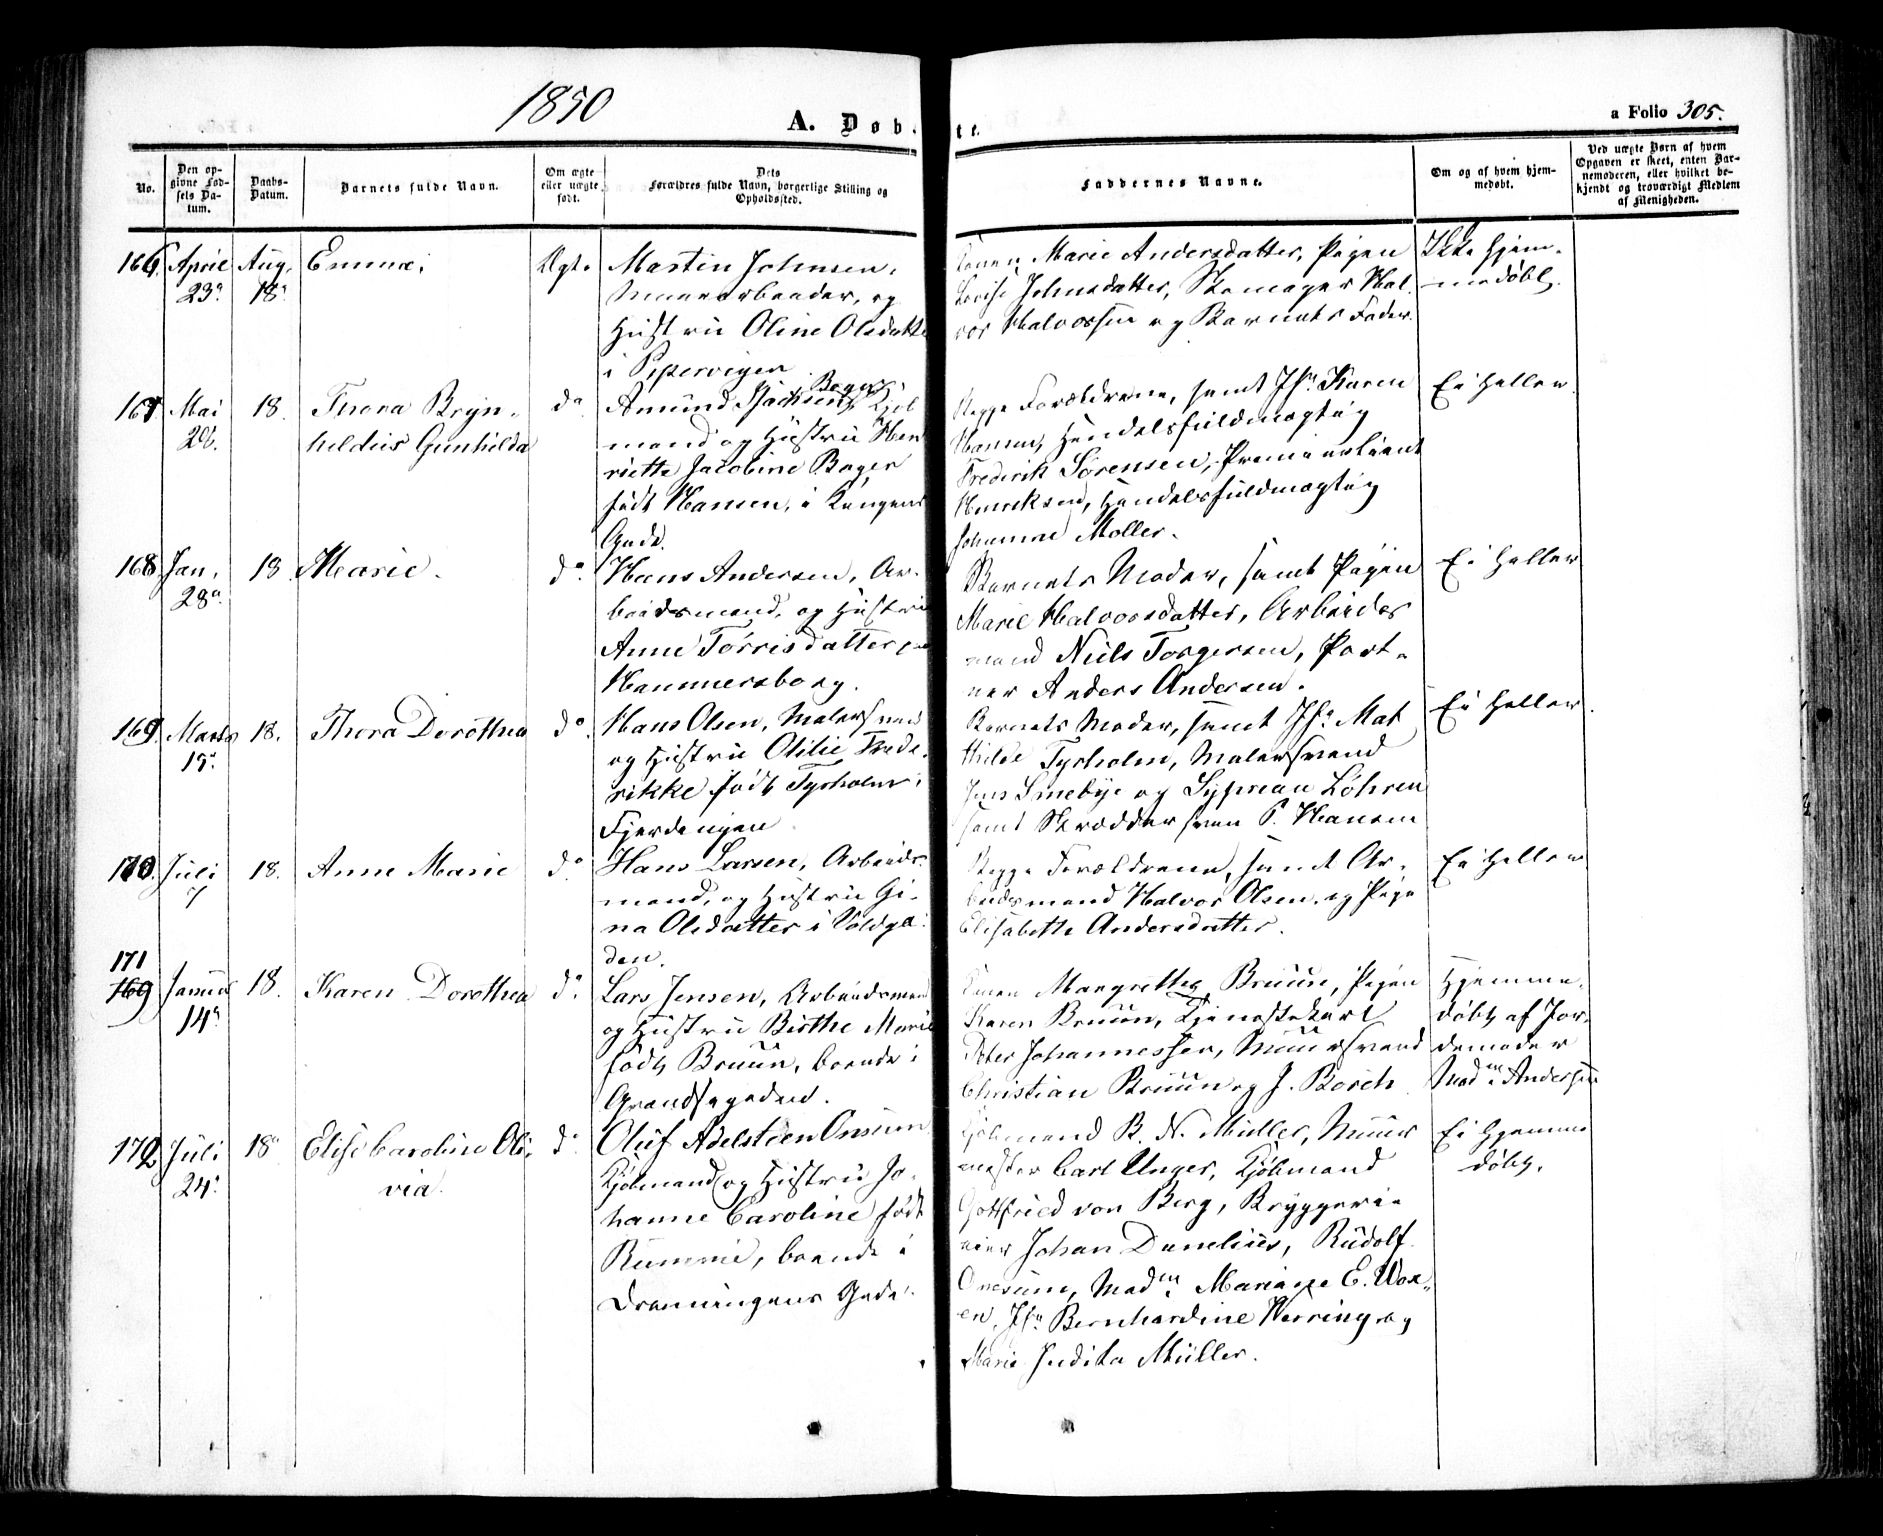 1850
A. Døb-
te.
a Folio 305.
No.
Den op-
givne Fød-
sels Da-
tum.
Daabs-
Datum.
Barnets fulde Navn.
Om ægte
eller uægte
født.
Dets
Forældres fulde Navn, borgerlige Stilling og
Opholdssted.
Faddernes Navne.
Om og af hvem hjem-
medøbt.
Ved uægte Børn af hvem
Opgaven er skeet, enten Bar-
nemoderen, eller hvilket be-
kjendt og troværdigt Medlem
af Menigheden.
166. April
23de
Aug.
18de
Emma.
Ægte
Martin Johnsen,
Muurarbeider, og
Hustru Oline Olsdatter
i Pipervigen
Konen Marie Andersdatter, Pigen
Lovise Johnsdatter, Skomager Hal-
vor Halvorsen og Barnets Fader.
Ikke hjem-
medøbt.
167 Mai
26.
18.
Thora Bryn-
heldus Gunhilda
do
Amund Isachsen Boger, Kjøb-
mand og Hustru Hen-
riette Jacobine Boger
født Hansen, i Kongens
Gade.
Begge Forældrene, samt Jfr. Karen
Hansen, Handelsfuldmægtig
Frederik Sørensen, Premierlieut
Henriksen, Handelsfuldmægtig
Johanne Møller.
Ei heller.
168 Jan.
28de
18
Marie.
do
Hans Andersen, Ar-
beidsmand, og Hustru
Anne Tørrisdatter paa
Hammersborg.
Barnets Moder, samt Pigen
Marie Halvorsdatter, Arbeids
mand Niels Torgersen, Port-
ner Anders Andersen.
Ei heller
169. Marts
19de
18.
Thora Dorothea
do
Hans Olsen, Malersvend
og Hustru Otilie Frede-
rikke født Tyrholm i
Fjerdingen
Barnets Moder, samt Jfr. Mat
hilde Tyrholm, Malersvend
Jens Smebye og Syprian Løhren
samt Skræddersvend P. Hansen
Ei heller.
170. Juli
7
18.
Anne Marie
do
Hans Larsen, Arbeids-
mand, og Hustru Gi-
na Olsdatter i Voldga-
den.
Begge Forældrene, samt Ar-
beidsmand Halvor Olsen og Pige
Elisabethe Andersdatter.
Ei heller
171
169 Januar
14de
18.
Karen Dorothea
do
Lars Jensen, Arbeidsmand
og Hustru Birthe Marie
født Bruun, boende i
Grændsegaden.
Konen Margrethe Bruun, Pigen
Karen Bruun, Tjenestekarl
Peter Johannessen, Muursvend
Christian Bruun og J. Borch
Hjemme-
døbt af Jor-
demoder
Madm. Andersen
172 Juli
24de
18de
Elise Caroline Oli-
via.
do
Oluf Adelsteen Onsum
Kjøbmand og Hustru Jo-
hanne Caroline født
Rumme, boende i
Dronningens Gade.
Kjøbmand B. N. Müller, Muur
mester Carl Unger, Kjøbmand
Gottfried von Berg, Bryggeri-
eier Johan Danelius, Rudolf
Onsum, Madm. Mariane E. Wox-
en, Jfr. Bernhardine Herring og
Marie Judita Müller.
Ei hjemme
døbt.